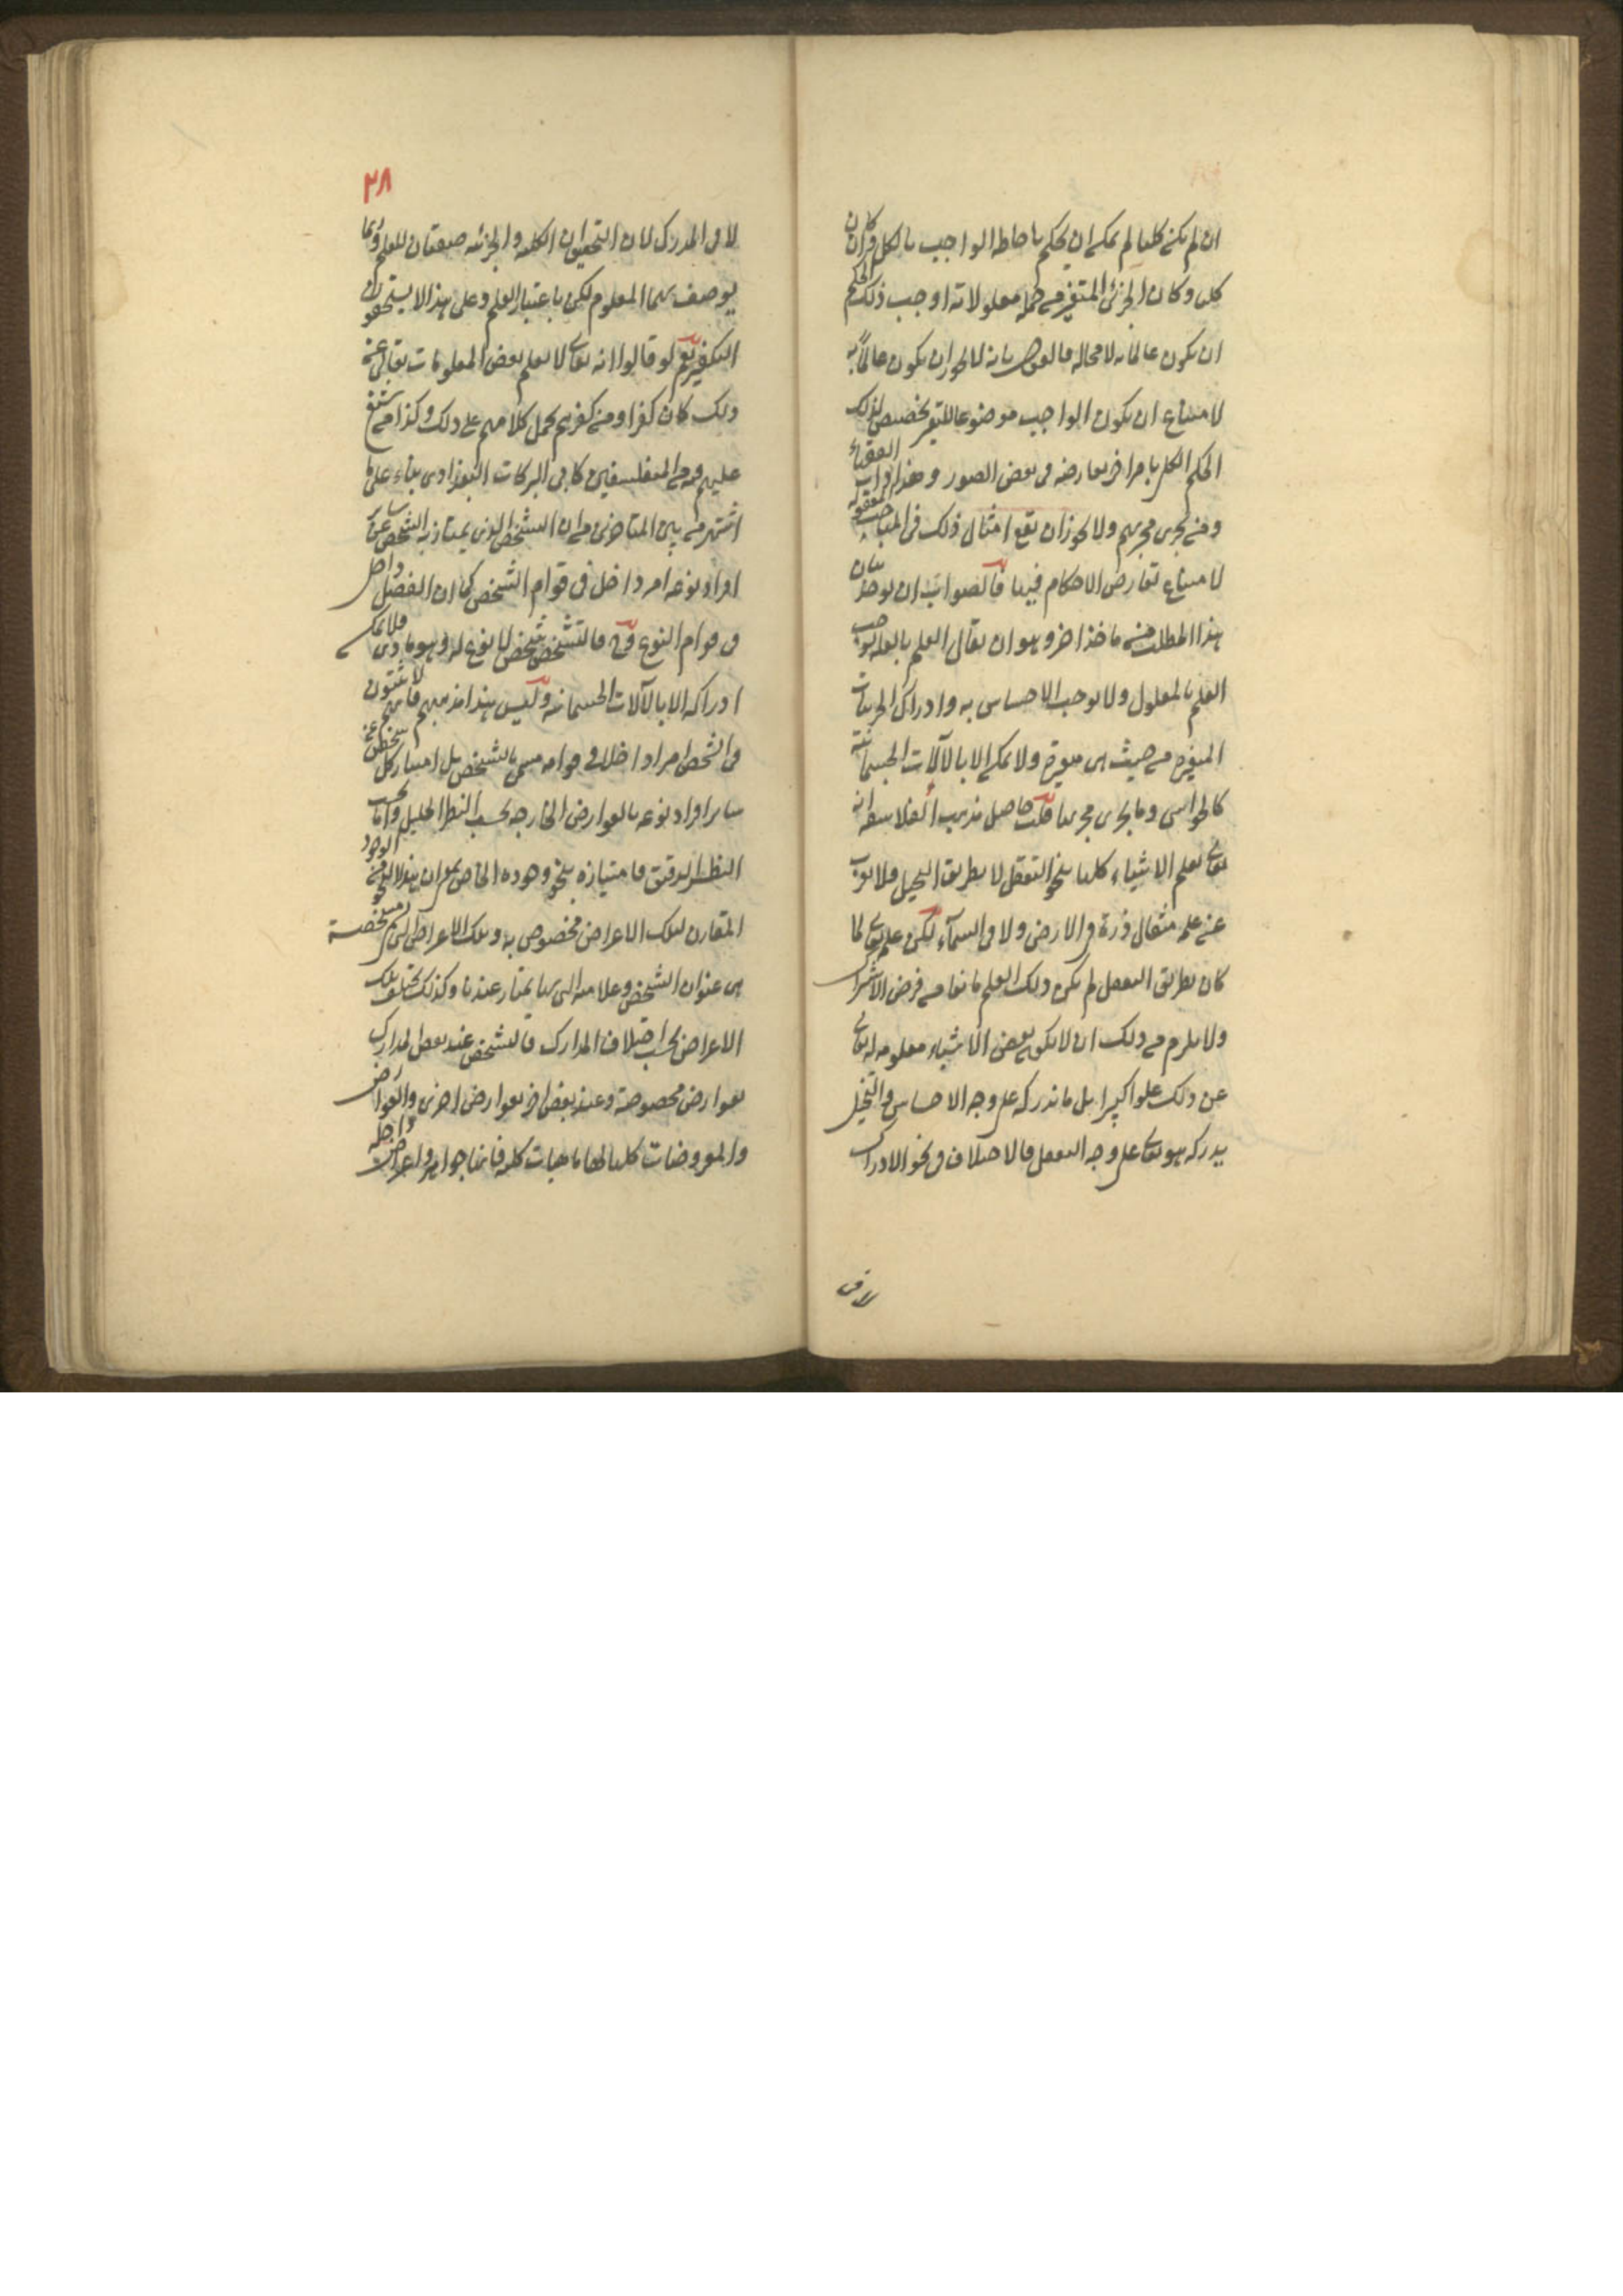 ان لم يكن كليا لم يمكن ان يحكم باحاطة الواجب بالكل وان كان
كليا وكان الجزئى المتغير من جملة معلولاته اوجب ذلك الحكم
ان يكون عالما به لا محالة فالقول بانه لا يجوز ان يكون عالما به
لامتناع ان يكون الواجب موضوعا للتغير تخصيص لذلك
الحكم الكلى بامر اخر يعارضه فى بعض الصور وهذا داب الفقهاء
ومن يجرى مجريهم ولا يجوز ان يقع امثال ذلك فى المباحث المعقولة
لامتناع تعارض الاحكام فيها فالصواب ان يوخذ بيان
هذا المطلب من ماخذ اخر وهو ان يقال العلم بالعلة يوجب
العلم بالمعلول ولا يوجب الاحساس به وادراك الجزئيات
المتغيرة من حيث هى متغيرة ولا يمكن الا بالآلات الجسمانية
كالحواس وما يجرى مجريها قلت حاصل مذهب الفلاسفة انه
تعالى يعلم الاشياء كلها بنحو التعقل لا بطريق التخيل فلا يعزب
عن علمه مثقال ذرة فى الارض ولا فى السمآء لكن علمه تعالى لما
كان بطريق التعقل لم يكن ذلك العلم مانعا من فرض الاشتراك
ولا يلزم من ذلك ان لا يكون بعض الاشياء معلومة له تعالى
عن ذلك علوا كبيرا بل ما ندركه على وجه الاحساس والتخيل
يدركه هو تعالى على وجه التعقل فالاختلاف فى نحو الادراك
لا فى
٢٨
لا فى المدرك لان التحقيق ان الكلية والجزئية صفتان للعلم وربما
يوصف بهما المعلوم لكن باعتبار العلم وعلى هذا لا يستحقون
التكفير نعم لو قالوا انه تعالى لا يعلم بعض المعلومات تعالى عن
ذلك كان كفرا ومن كفرهم حمل كلامهم على ذلك وكذا من شنع
عليهم من المتفلسفين كابى البركات البغدادى بناء على ما
اشتهر من بين المتاخرين من ان التشخص الذى يمتاز به الشخص عن سائر
افراد نوعه امر داخل فى قوام الشخص كما ان الفصل داخل
فى قوام النوع فالتشخص شخص لا نوع له وهو مادى فلا يمكن
ادراكه الا بالآلات الجسمانية وليس هذا مذهبهم فانهم لا يثبتون
فى الشخص امرا داخلا فى قوامه مسمى بالتشخص بل امتياز كل شخص عن
سائر افراد نوعه بالعوارض الخارجة بحسب النظر الجليل واما بحسب
النظر الدقيق فامتيازه بنحو وجوده الخاص بمعنى ان هذا النحو من الوجود
المقارن لتلك الاعراض مخصوص به وتلك الاعراض التى مشخصة
هى عنوان الشخص وعلامته التى بها يمتاز عندنا وكذلك يختلف تلك
الاعراض بحسب اختلاف المدارك فالشخص عند بعض المدارك
بعوارض مخصوصة وعند بعض اخر بعوارض اخرى والعوارض
والمعروضات كلها لها ماهيات كلية فانها جواهر واعراض داخلة